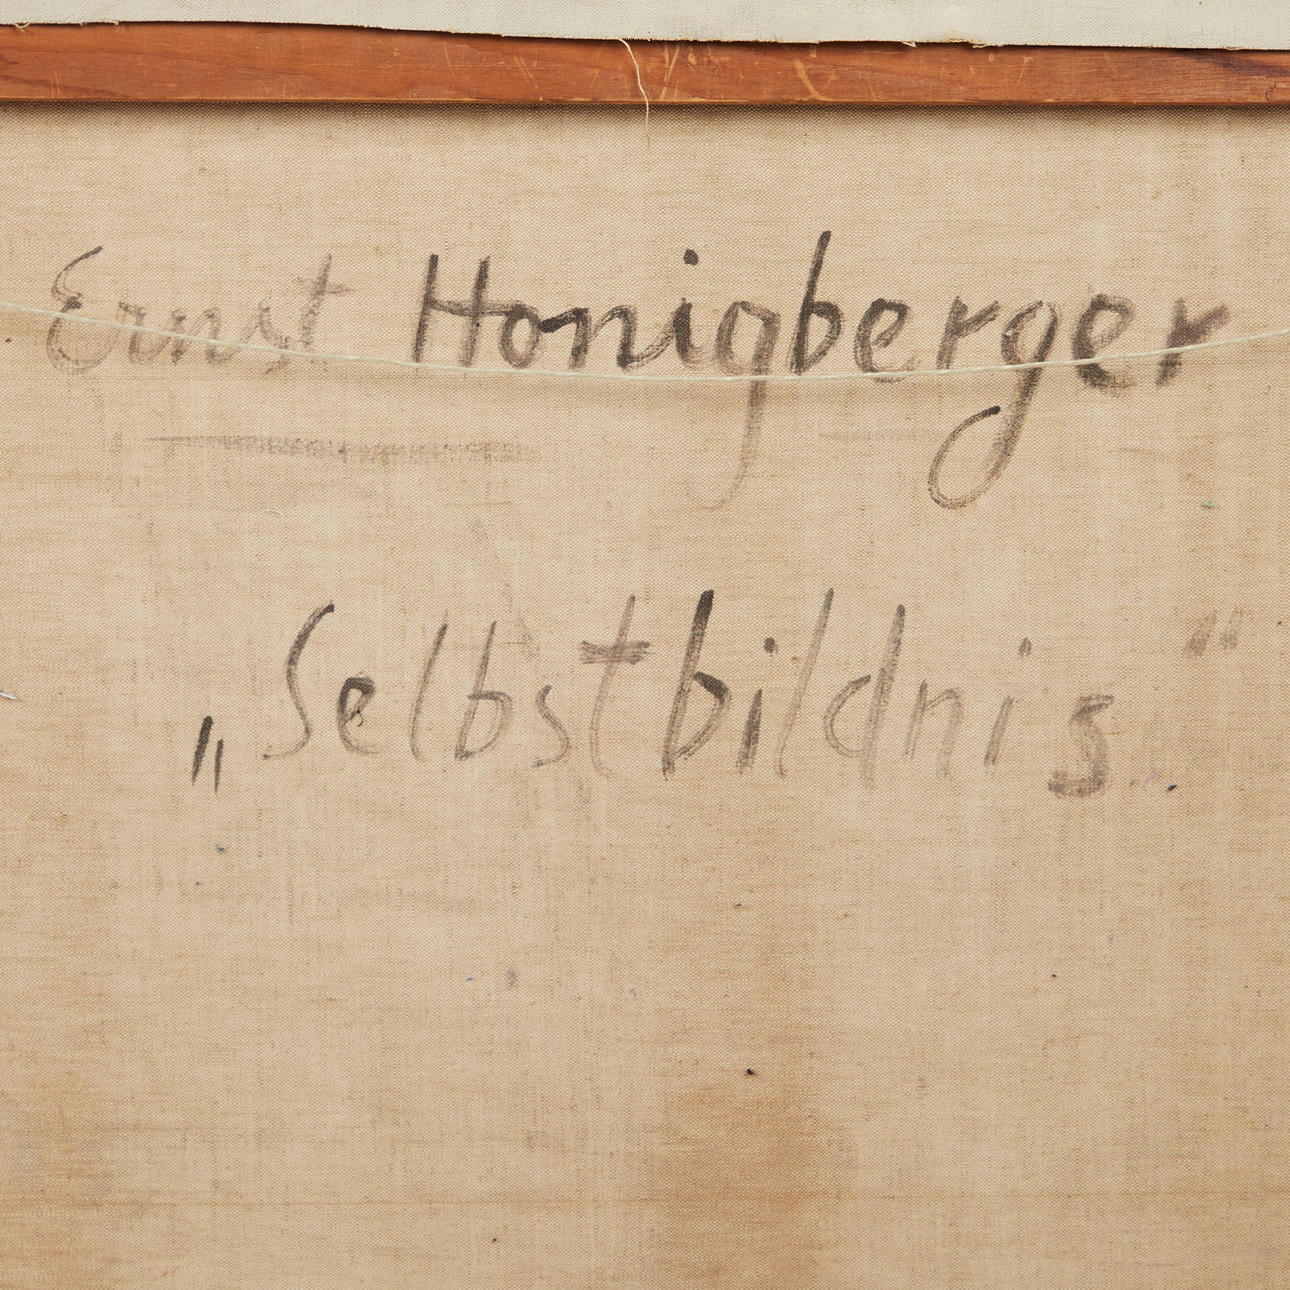 Ernst Honigberger
„Selbstbildnis."